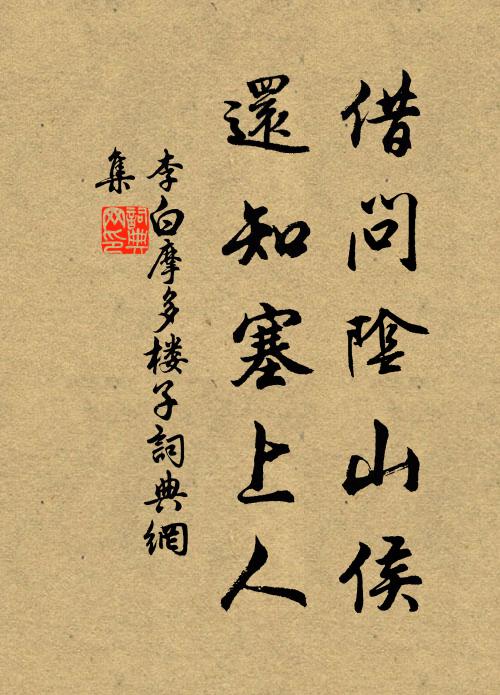 借問陰山侯
還知塞上人
李白摩多楼子詞典網
集
詞典网印